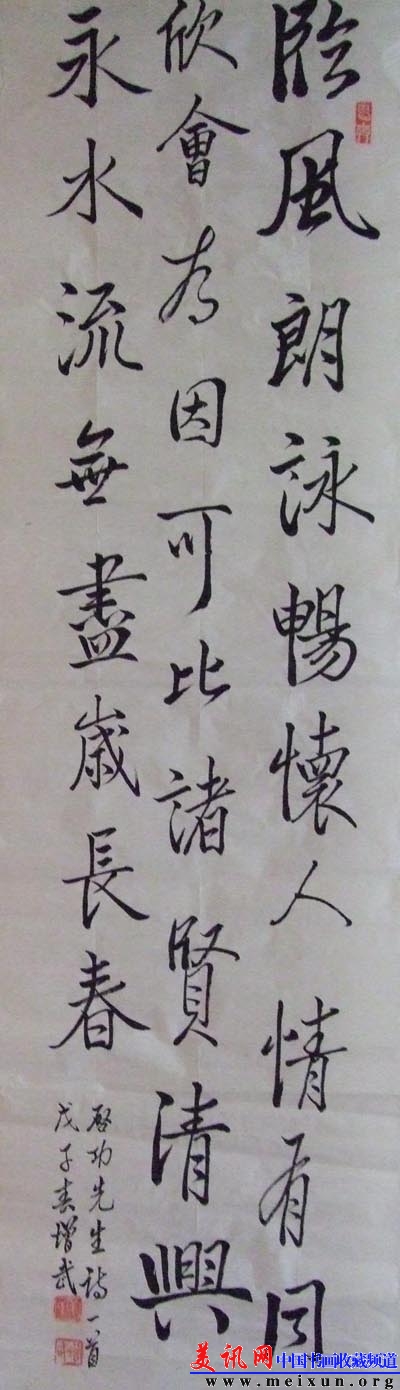 臨風朗詠暢懷人情有同
欣會為因可比諸賢清興
永水流無盡歲長春
啓功先生詩一首
戊子春增武
美讯网 中国书画收藏频道
www.meixun.org